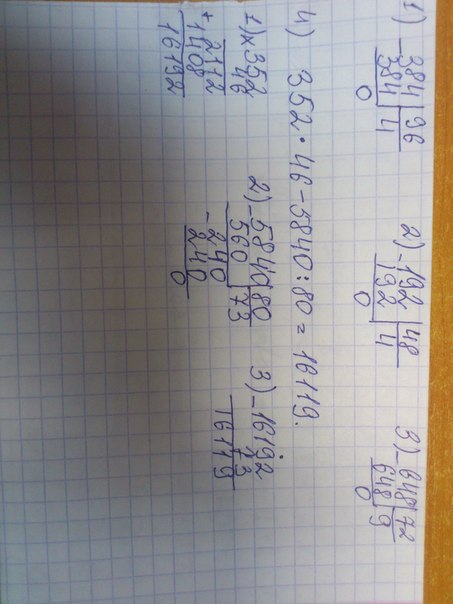 1) -384|96
384|4
0
2) -192|48
192|4
0
3) -648|72
648|9
0
4) 352 · 46 - 5840 : 80 = 16119.
1) x352
46
+2112
1408
16192
2) -5840|80
560|73
-240
240
0
3) -16192
73
16119